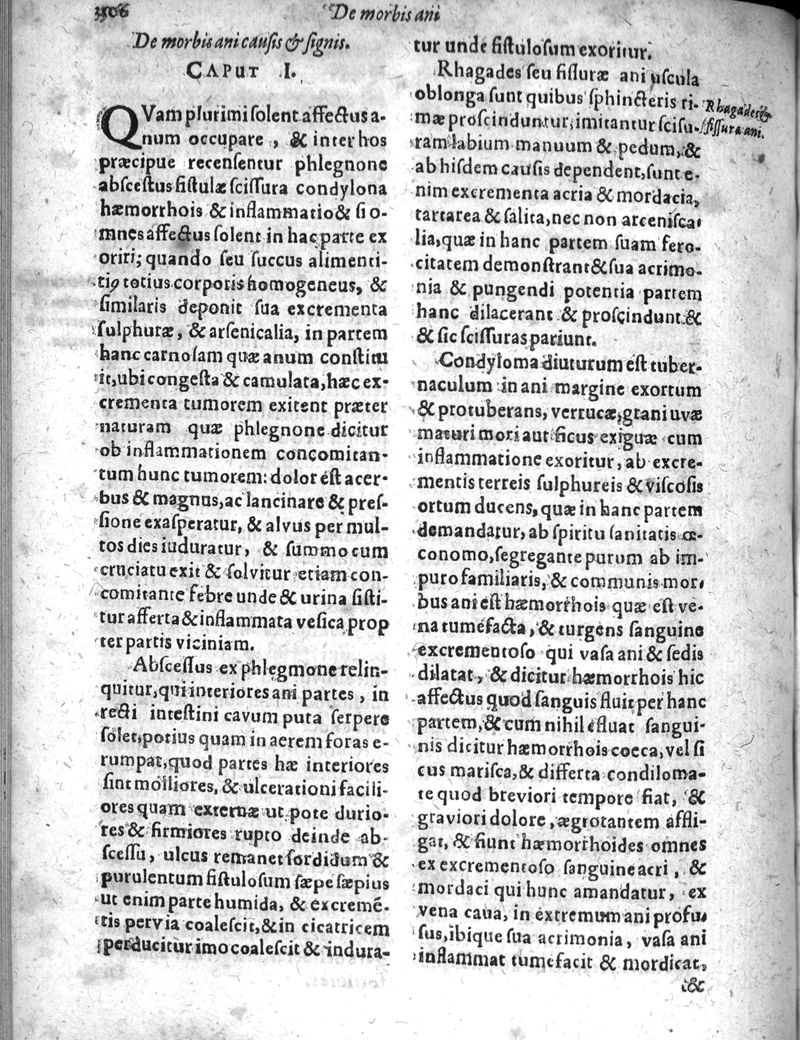 De morbis ani
De morbis ani causis & signis.
CAPUT I.
QVam plurimi solent affectus a-
num occupare, & inter hos
præcipue recensentur phlegnone
abscestus fistulæ scissura condylona
hæmorrhois & inflammatio & si o-
mnes affectus solent in hac parte ex
oriri; quando seu succus alimenti-
tiꝰ totius corporis homogeneus, &
similaris deponit sua excrementa
sulphuræ, & arsenicalia, in partem
hanc carnosam quæ anum constitu
it, ubi congesta & camulata, hæc ex-
crementa tumorem exitent præter
naturam quæ phlegnone dicitur
ob inflammationem concomitan-
tum hunc tumorem: dolor ést acer-
bus & magnus, ac lancinare & pres-
sione exasperatur, & alvus per mul-
tos dies iuduratur, & summo cum
cruciatu exit & solvitur etiam con-
comitante febre unde & urina sisti-
tur afferta & inflammata vesica prop
ter partis viciniam.
Abscessus ex phlegmone relin-
quitur, qui interiores ani partes, in
recti intestini cavum puta serpere
solet, potius quam in aerem foras e-
rumpat, quod partes hæ interiores
sint molliores, & ulcerationi facili-
ores quam externæ ut pote durio-
res & firmiores rupto deinde ab-
scessu, ulcus remanet sordidum &
purulentum fistulosum sæpe sæpius
ut enim parte humida, & excremē-
tis pervia coalescit, & in cicatricem
perducitur imo coalescit & indura-
tur unde fistulosum exoritur.
Rhagades seu fissuræ ani uscula
oblonga sunt quibus sphincteris ri-
mæ proscinduntur, imitantur scisu-
ram labium manuum & pedum, &
ab hisdem causis dependent, sunt e-
nim excrementa acria & mordacia,
tartarea & salita, nec non arcenisca-
lia, quæ in hanc partem suam fero-
citatem demonstrant & sua acrimo-
nia & pungendi potentia partem
hanc dilacerant & proscindunt &
& sic scissuras pariunt.
Rhagades &
fissura ani.
Condyloma diuturum est tuber-
naculum in ani margine exortum
& protuberans, verrucæ, grani uvæ
maturi mori aut ficus exiguæ cum
inflammatione exoritur, ab excre-
mentis terreis sulphureis & viscosis
ortum ducens, quæ in hanc partem
demandatur, ab spiritu sanitatis œ-
conomo, segregante purum ab im-
puro familiaris, & communis mor-
bus ani est hæmorrhois quæ est ve-
na tumefacta, & turgens sanguine
excrementoso qui vasa ani & sedis
dilatat, & dicitur hæmorrhois hic
affectus quod sanguis fluit per hanc
partem, & cum nihil efluat sangui-
nis dicitur hæmorrhois coeca, vel fi
cus marisca, & differt a condiloma-
te quod breviori tempore fiat, &
graviori dolore, ægrotantem affli-
gat, & fiunt hæmorrhoides omnes
ex excrementoso sanguine acri, &
mordaci qui hunc amandatur, ex
vena caua, in extremum ani profu-
sus, ibique sua acrimonia, vasa ani
inflammat tumefacit & mordicat,
&